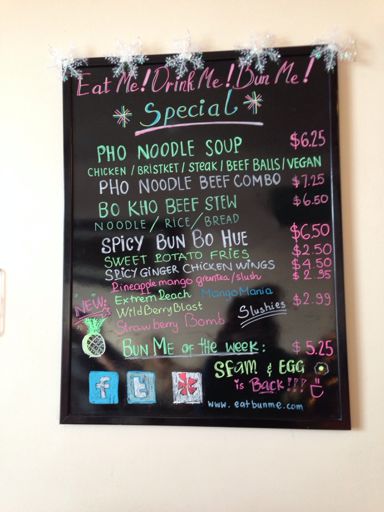 Eat Me! Drink Me! Bun Me!
Special
PHO NOODLE SOUP $6.25
CHICKEN / BRISTKET / Steak / BEEF BALLS / VEGAN
PHO NOODLE BEEF COMBO $7.25
BO KHO BEEF STEW $6.50
NOODLE / RICE / BREAD
SPICY BUN BO HUE $6.50
SWEET POTATO FRIES $2.50
SPICY GINGER CHICKEN WINGS $4.50
Pineapple mango green tea / slush $2.95
NEW:
Extrem Peach MangoMania
WildBerryBlast Slushies $2.99
Strawberry Bomb
BUN ME OF the week: $5.25
SPAM & EGG
is BACK!!!
f t
www.eatbunme.com